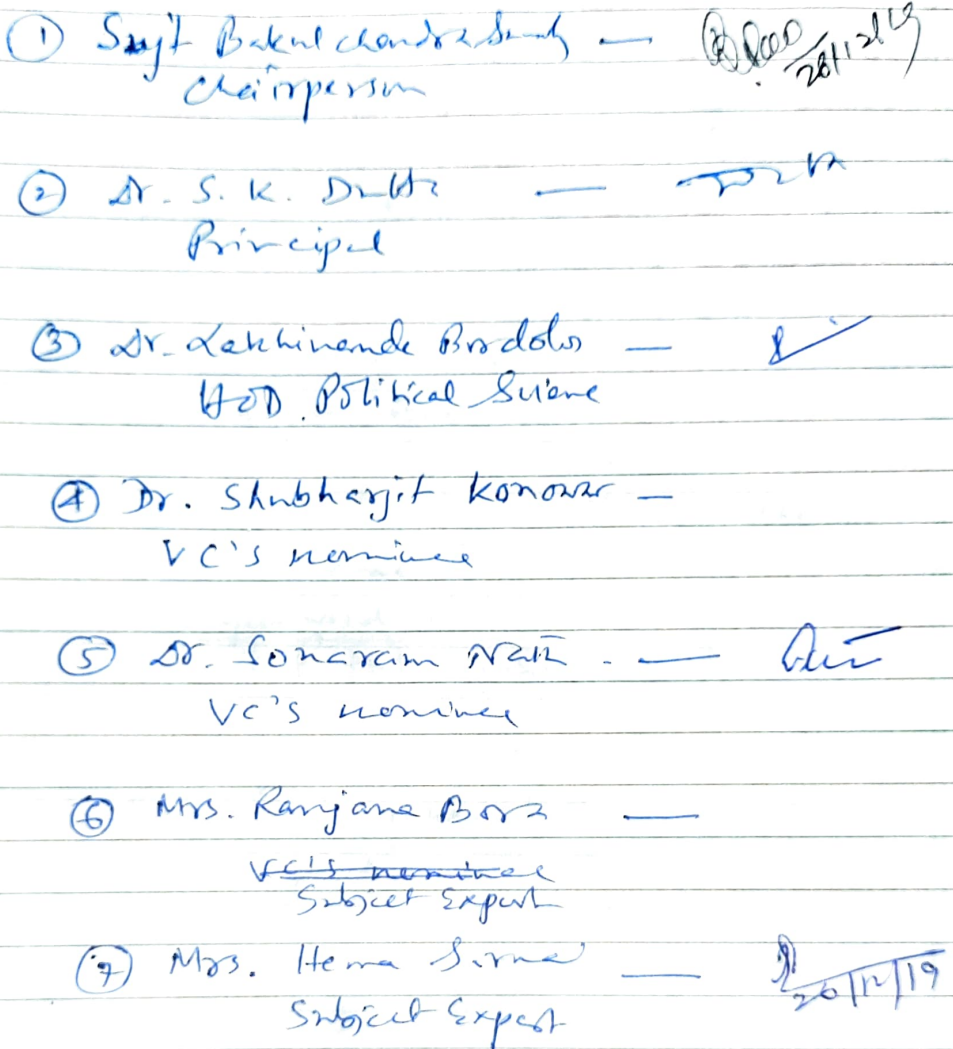 ① Srijit Bakul Chandra —
Chairperson
② Dr. S. K. Dutta —
Principal
③ Dr. Lakhinanda Bordoloi —
HOD. Political Science
④ Dr. Shubharjit Konowar —
VC's nominee
⑤ Dr. Sonaram Nath. —
VC's nominee
⑥ Mrs. Ranjana Bora —
VC's nominee
Subject Expert
⑦ Mrs. Hema — 20/12/19
Subject Expert